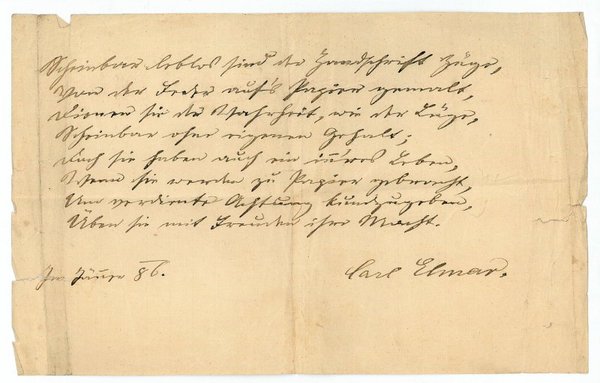 Scheinbar leblos sind der Handschrift Züge,
Von der Feder auf's Papier gemalt,
Dienen sie der Wahrheit, wie der Lüge,
Scheinbar ohne eigenen Gehalt;
Doch sie haben auch ein inn'res Leben,
Wenn sie werden zu Papier gebracht,
Um verdiente Achtung kundzugeben,
Üben sie mit Freuden ihre Macht.
Im Jänner 86.
Carl Elmar.